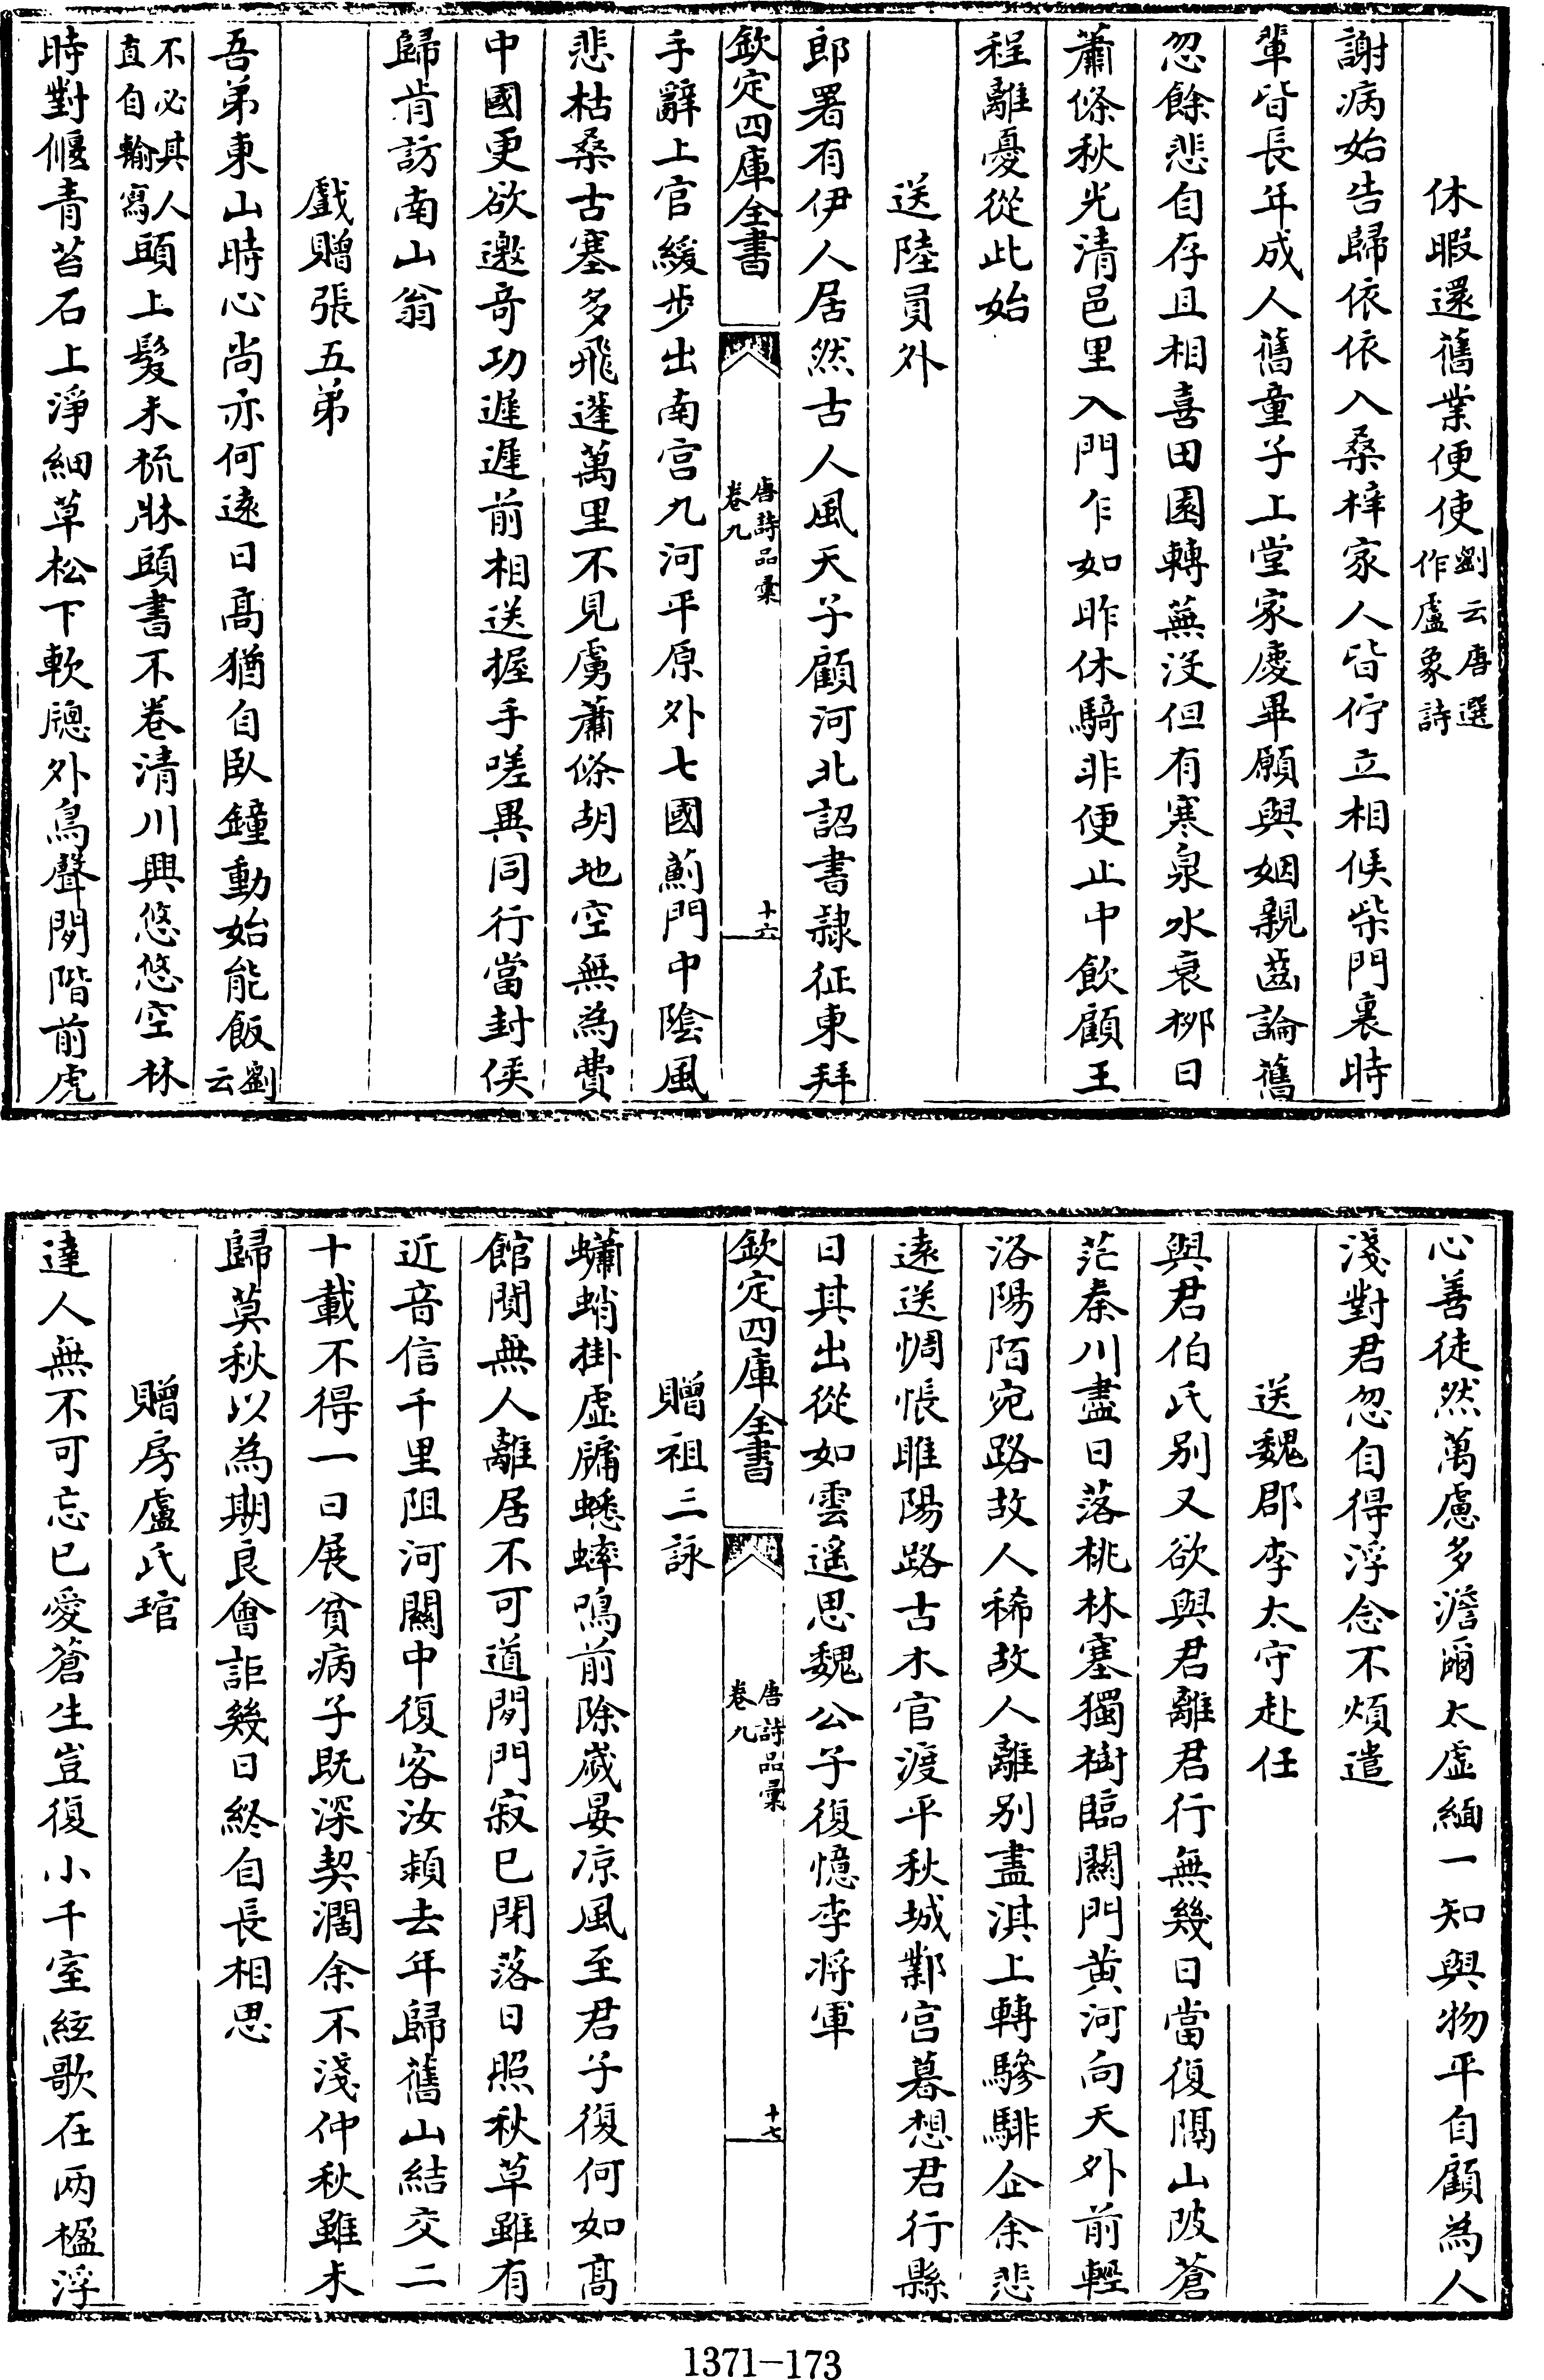 休暇還舊業便使劉云唐選作盧象詩
謝病始告歸依依入桑梓家人皆佇立相候柴門裏時
輩皆長年成人舊童子上堂家慶畢願與姻親齒論舊
忽餘悲自存且相喜田園轉蕪沒但有寒泉水衰柳日
蕭條秋光清邑里入門乍如昨休騎非便止中飲顧王
程離憂從此始
送陸員外
郎署有伊人居然古人風天子顧河北詔書隷征東拜
欽定四庫全書
唐詩品彙
卷九
十六
手辭上官緩步出南宫九河平原外七國薊門中陰風
悲枯桑古塞多飛蓬萬里不見虜蕭條胡地空無為費
中國更欲邀奇功遲遲前相送握手嗟異同行當封侯
歸肯訪南山翁
戲贈張五弟
吾弟東山時心尚亦何遠日髙猶自臥鐘動始能飯劉云
不必其人直自輸寫頭上髮未梳牀頭書不卷清川興悠悠空林
時對偃青苔石上淨細草松下軟牕外鳥聲閑階前虎
心善徒然萬慮多澹爾太虛緬一知與物平自顧為人
淺對君忽自得浮念不煩遣
送魏郡李太守赴任
與君伯氏别又欲與君離君行無幾日當復隔山陂蒼
茫秦川盡日落桃林塞獨樹臨關門黄河向天外前輕
洛陽陌宛路故人稀故人離别盡淇上轉驂騑企余悲
遠送惆悵睢陽路古木官渡平秋城鄴宫暮想君行縣
日其出從如雲遥思魏公子復憶李将軍
欽定四庫全書
唐詩品彙
卷九
十七
贈祖三詠
蠨蛸掛虚牖蟋蟀鳴前除嵗晏凉風至君子復何如髙
館闃無人離居不可道閑門寂已閉落日照秋草雖有
近音信千里阻河關中復客汝頴去年歸舊山結交二
十載不得一日展貧病子既深契濶余不淺仲秋雖未
歸莫秋以為期良會詎幾日終自長相思
贈房盧氏琯
達人無不可忘已愛蒼生豈復小千室絃歌在两楹浮
1371-173